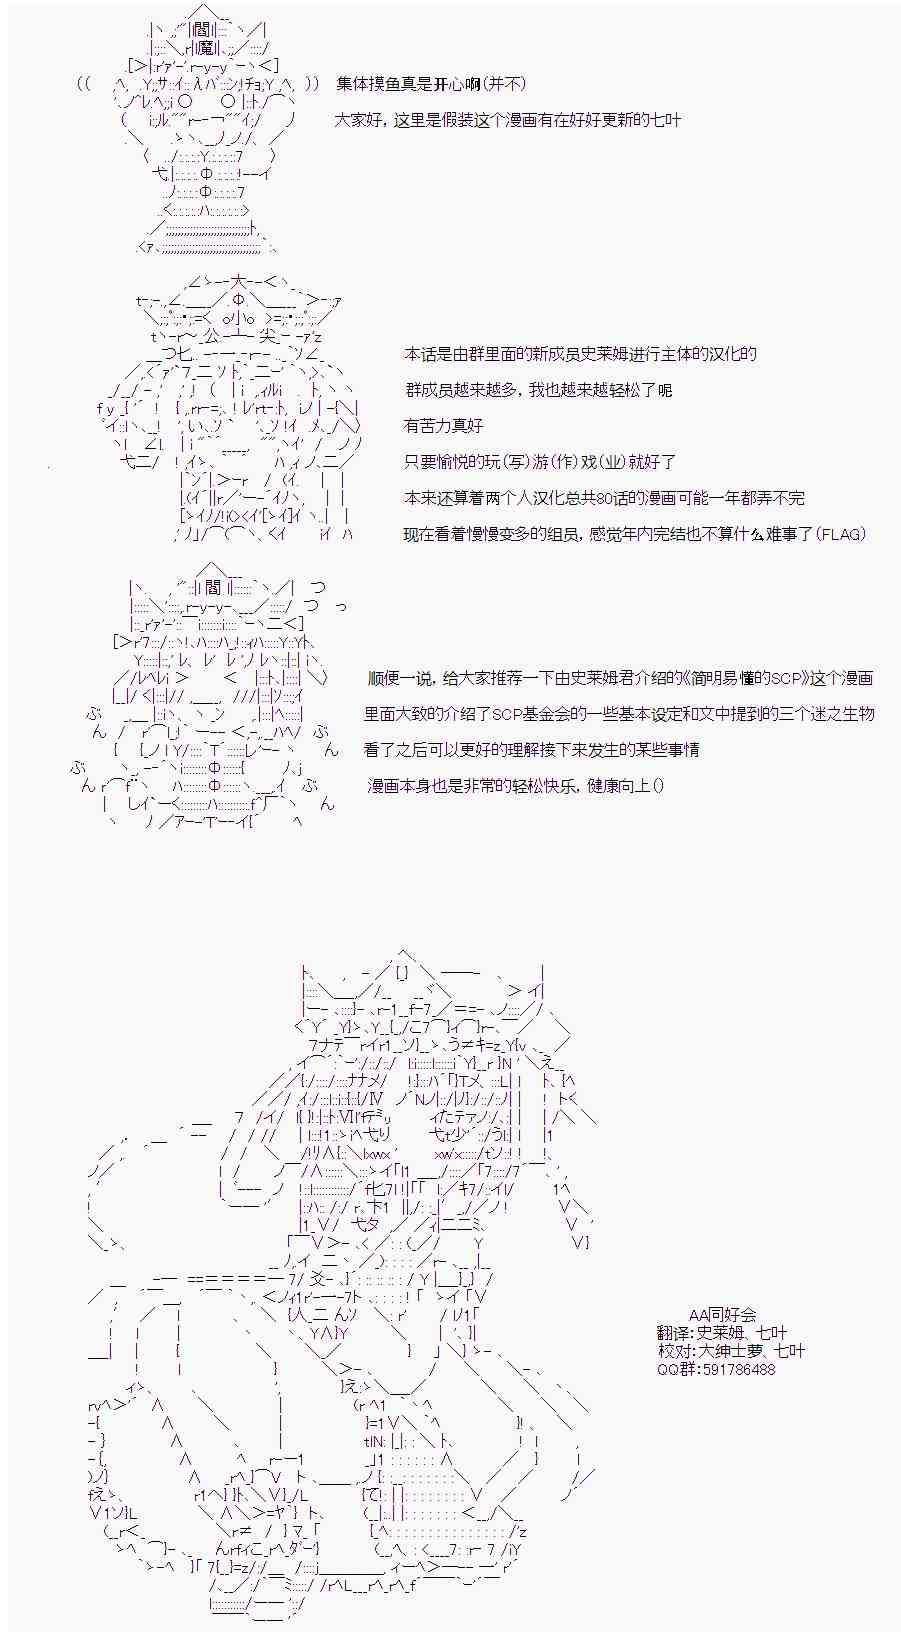 集体摸鱼真是开心啊(并不)
大家好，这里是假装这个漫画有在好好更新的七叶
本话是由群里面的新成员史莱姆进行主体的汉化的
群成员越来越多，我也越来越轻松了呢
有苦力真好
只要愉悦的玩(写)游(作)戏(业)就好了
本来还算着两个人汉化总共80话的漫画可能一年都弄不完
现在看着慢慢变多的组员，感觉年内完结也不算什么难事了(FLAG)
顺便一说，给大家推荐一下由史莱姆君介绍的《简明易懂的SCP》这个漫画
里面大致的介绍了SCP基金会的一些基本设定和文中提到的三个迷之生物
看了之后可以更好的理解接下来发生的某些事情
漫画本身也是非常的轻松快乐，健康向上()
AA同好会
翻译:史莱姆、七叶
校对:大绅士萝、七叶
QQ群:591786488